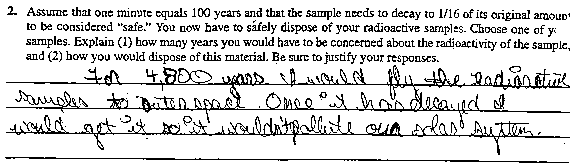 2. Assume that one minute equals 100 years and that the sample needs to decay to 1/16 of its original amount
to be considered "safe." You now have to safely dispose of your radioactive samples. Choose one of y
samples. Explain (1) how many years you would have to be concerned about the radioactivity of the sample,
and (2) how you would dispose of this material. Be sure to justify your responses.
For 4,800 years I would fly the radioactive
samples to outer space. Once it has decayed I
would get it so it wouldn't pollute our solar system.